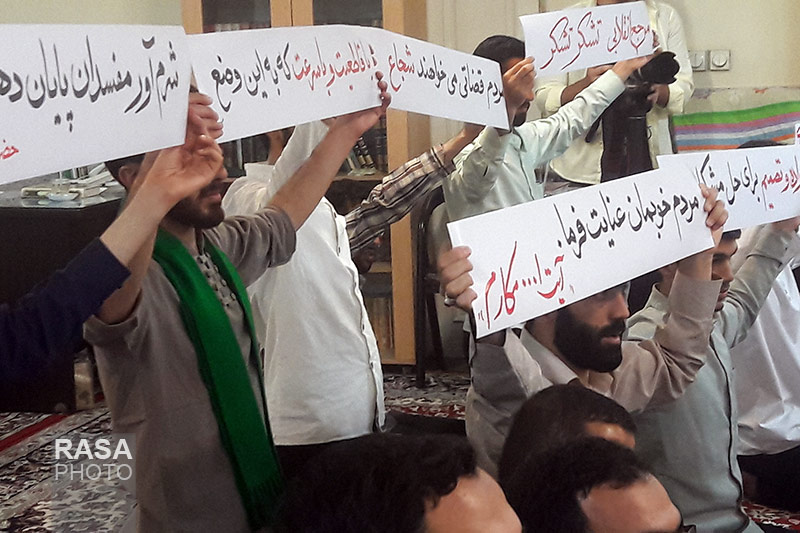 مرجع انقلابی تشکر تشکر
مردم قضاتی می خواهند شجاع
با قاطعیت و با سرعت که به این وضع
شرم آور مفسدان پایان ده
تصمیم برای حل
مردم خوبمان عنایت فرما
آیت ا... مکارم
RASA
PHOTO